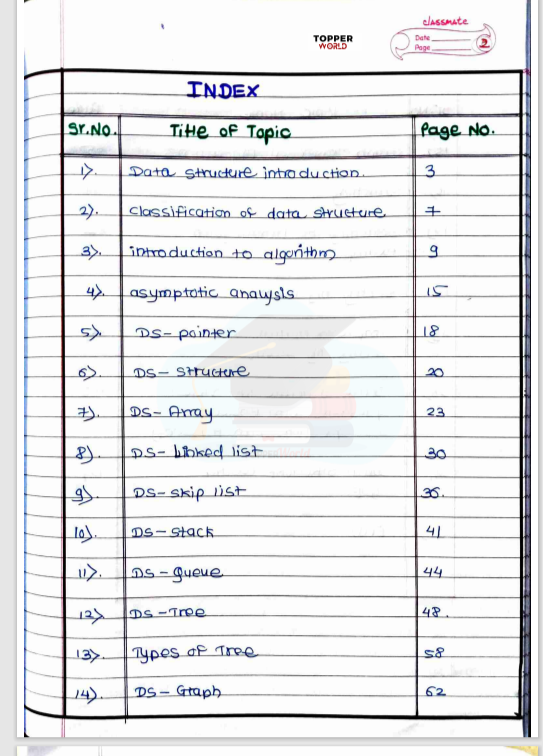 classmate
TOPPER
WORLD
Date
Page 2
INDEX
Sr.No. Title of Topic Page No.
1). Data structure introduction. 3
2). classification of data structure 7
3). introduction to algorithm 9
4). asymptotic anaysis 15
5). DS- pointer 18
6). DS- structure 20
7). DS- Array 23
8). DS- Linked list 30
9). DS- skip list 36.
10). DS- stack 41
11). DS- queue 44
12) DS-Tree 48.
13). Types of Tree 58
14). DS- Graph 62